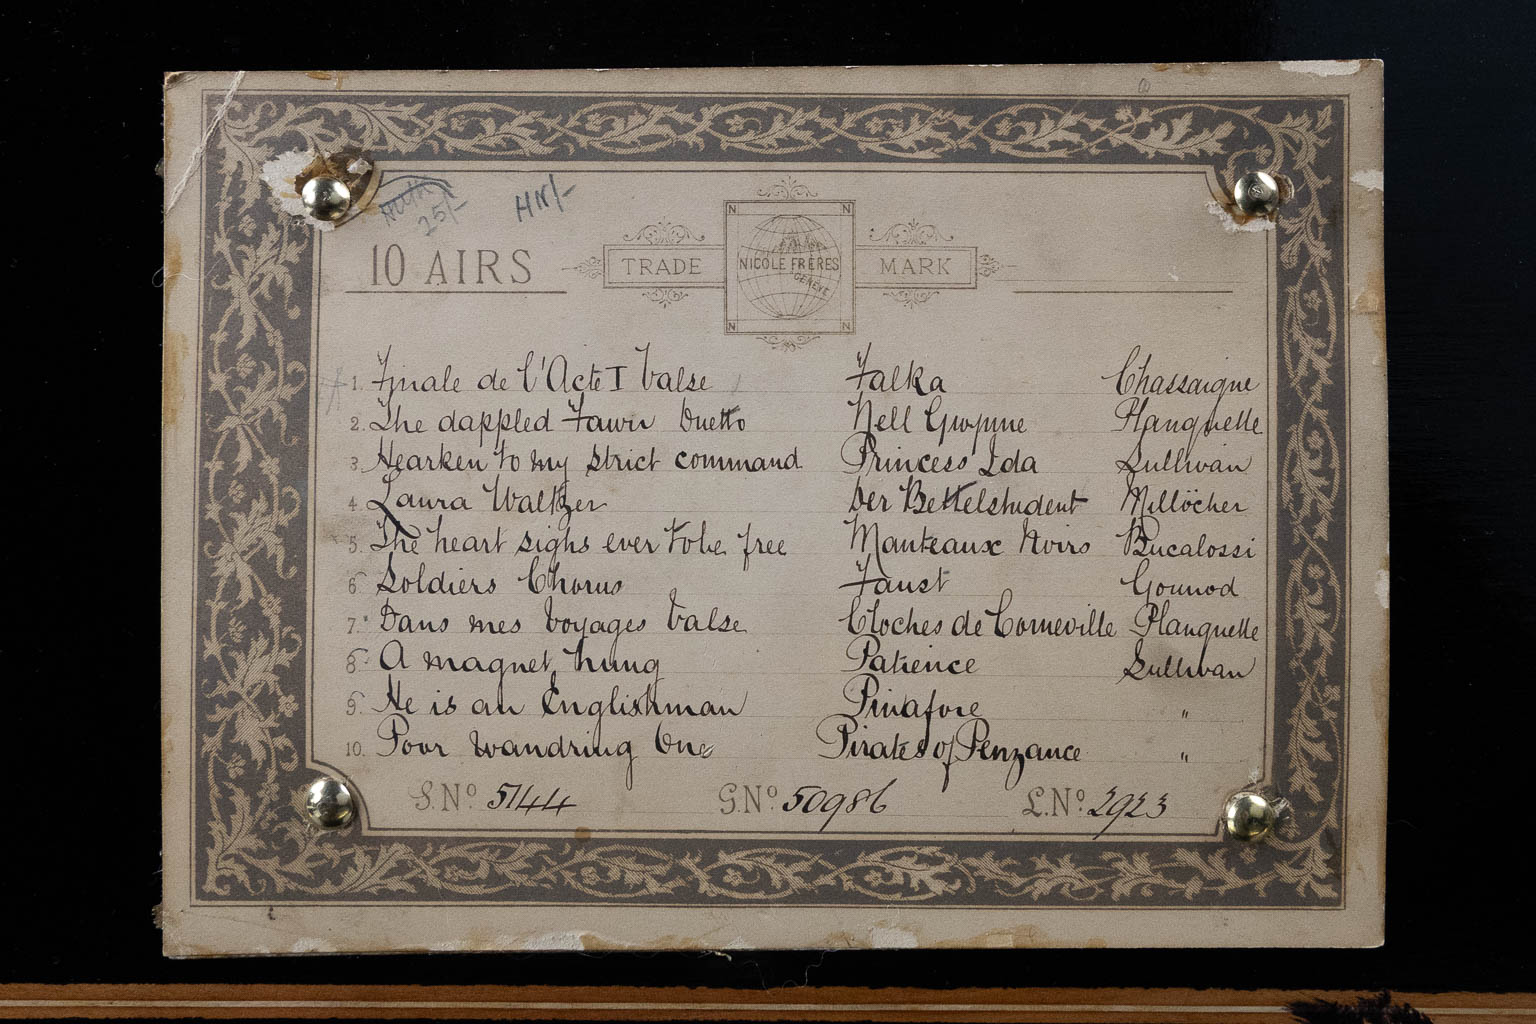 25/-
HN/-
10 AIRS
TRADE
N N
NICOLE FRÈRES
GENÈVE
N N
MARK
1. Finale de l'Acte I Valse Falka Chassaigne
2. The dappled Fawn Duetto Nell Gwynne Planquette
3. Hearken to my strict command Princess Ida Sullivan
4. Laura Waltzer Der Bettelstudent Millöcher
5. The heart sighs ever to be free Manteaux Noirs Bucalossi
6. Soldiers Chorus Faust Gounod
7. Dans mes Voyages Valse Cloches de Corneville Planquette
8. A magnet hung Patience Sullivan
9. He is an Englishman Pinafore "
10. Poor wandring One Pirates of Penzance "
S.Nº 5144 G.Nº 50986 L.Nº 2923